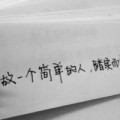 做一个简单的人，踏实而